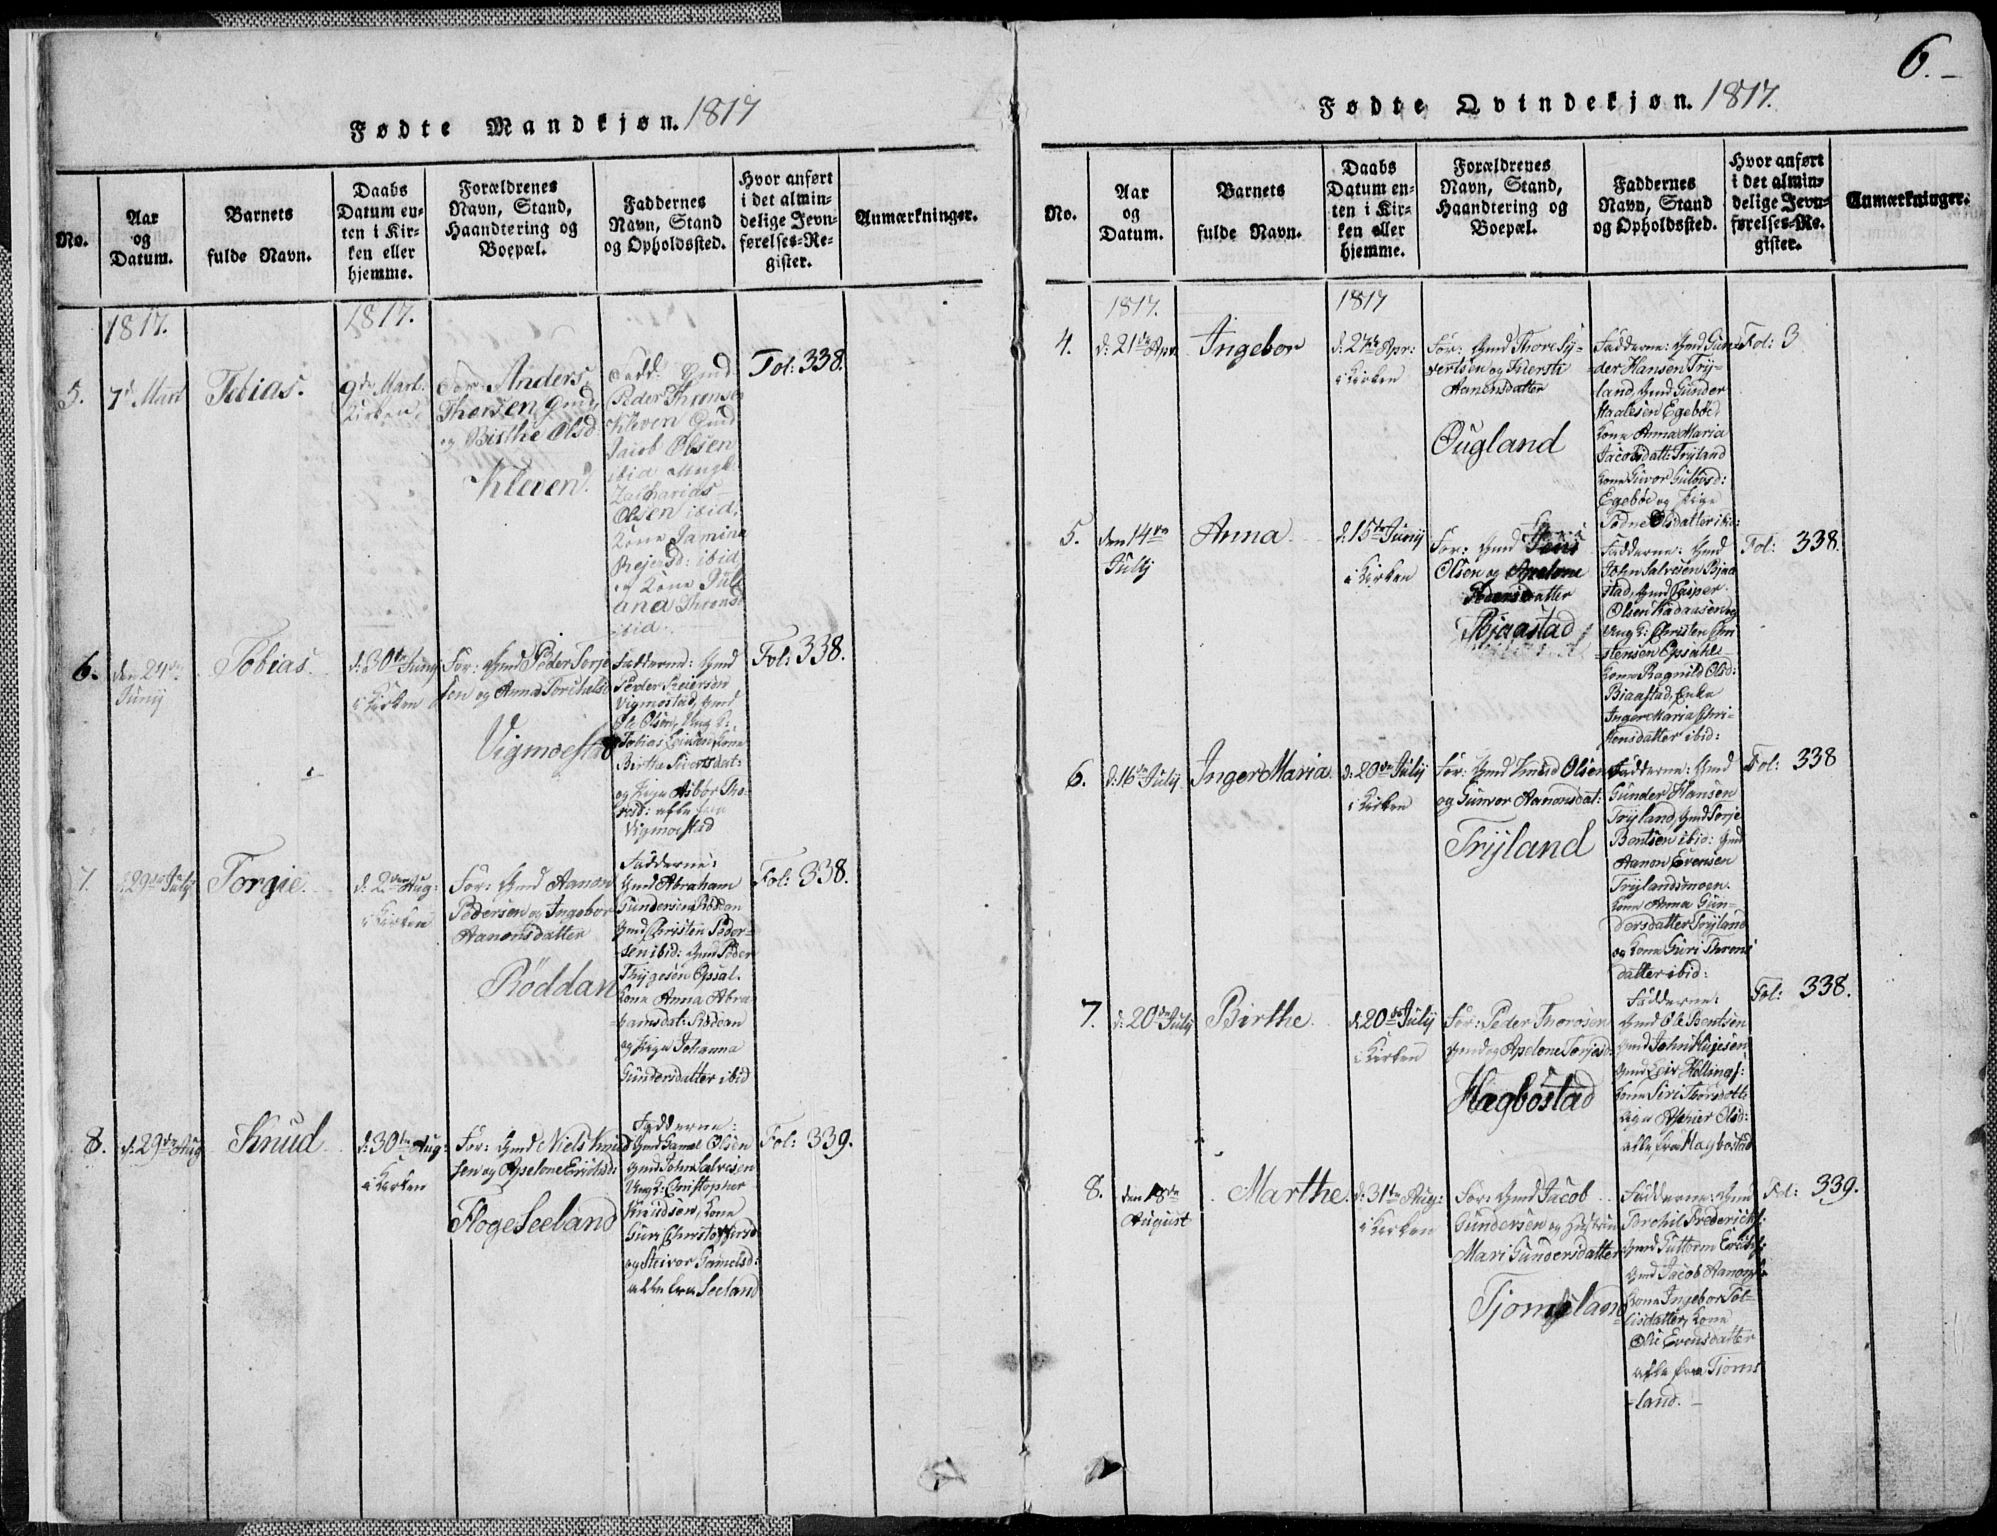 6.
Fødte Mandkjøn. 1817
No.
Aar
og
Datum.
Barnets
fulde Navn.
Daabs
Datum en-
ten i Kir-
ken eller
hjemme.
Forældrenes
Navn, Stand,
Haandtering og
Boepæl.
Faddernes
Navn, Stand
og Opholdssted.
Hvor anført
i det almin-
delige Jevn-
førelses-Re-
gister.
Anmærkninger.
1817.
1817.
5.
7d Mart
Tobias.
9de Mart.
Kirken.
For: Anders
Thorsen Gmd
og Birthe Olsd:
Kleven.
Fadd: Gmd
Peder Thronse
Kleven Gmd
Jacob Olsen
ibid Ungk:
Zacharias
Olsen ibid,
Kone Jamina
Rejersd: ibid
og Kone Juli
ana Thronsd
ibid.
Fol: 338.
6.
den 24de
Junij
Tobias.
d: 30te Junij
i Kirken
For: Gmd Peder Torje
sen og Anna Torchelsd
Vigmoestad
Fadderne: Gmd
Peder Reiersen
Vigmostad, Gmd
Ole Olsen, Ung K:
Tobias Kone
Birthe Sivertsdat:
og Pige Asbor Tho-
resd: alle fra
Vigmoestad
Fol: 338.
7.
d: 29de July
Torgie.
d: 2den Aug:
i Kirken
For: Gmd Aanon
Pedersen og Ingebor
Aanonsdatter
Röddan
Fadderne:
Gmd Abraham
Gundersen Röddan
Gmd Christen Peder-
sen ibid: Gmd Peder
Thygesen Opsal.
Kone Anna Abra-
hamsdat: Röddan
og Pige Johanna
Gundersdatter ibid
Fol: 338.
8.
d: 29de Aug
Knud
d: 30te Aug:
i Kirken
For: Gmd Niels Knud
sen og Apelone Erichsd:
Floge Seeland
Fadderne:
Gmd Gamel Olsen
Gmd John Salvesen
Ung K: Christopher
Knudsen, Kone
Guri Christophersd
og Steivor Gamelsd:
alle fra Seeland
Fol: 339.
Fødte Qvindekjøn. 1817.
No.
Aar
og
Datum.
Barnets
fulde Navn.
Daabs
Datum en-
ten i Kir-
ken eller
hjemme.
Forældrenes
Navn, Stand,
Haandtering og
Boepæl.
Faddernes
Navn, Stand
og Opholdssted.
Hvor anført
i det almin-
delige Jevn-
førelses-Re-
gister.
Anmærkninger.
1817.
1817
4.
d: 21de Apr.
Ingebor
d: 27de Apr:
i Kirken
For: Gmd Thore Sy-
vertsen og Kiersti
Aanensdatter
Ougland
Fadderne: Gmd Gun-
der Hansen Try-
land, Gmd Gunder
Haalesen Egeböe
Kone Anna Maria
Jacobsdatt: Tryland
Kone Guror Gulovsd:
Egeböe og Pige
Todne Olsdatter ibd:
Fol: 3
5.
den 14de
July
Anna
d: 15de Junij
i Kirken
For: Gmd Jens
Olsen og Apelone
Pedersdatter
Bjaastad
Fadderne: Gmd
John Salvesen Bjaa
stad, Gmd Casper
Olsen og
Ung K: Christen Chri
stensen Opsahl
Kone Ragnild Olsd:
Biaastad, Enke
Inger Maria Chri-
stensdatter ibid:
Fol: 338.
6.
d: 16de July
Inger Maria
d: 20de July
i Kirken
For: Gmd Omund Olsen
og Gunvor Aanonsdat:
Tryland
Fadderne: Gmd
Gunder Hansen
Tryland, Gmd Torje
Bentsen ibid: Gmd
Aanon Evensen
Trylandsmoen.
Kone Anna Gun-
dersdatter Tryland
og Kone Guri Throns
datter ibid:
Fol: 338
7.
d: 20de July
Birthe
d: 20de July
i Kirken
For: Peder Thorosen
Gmd og Apelone Torjesd:
Hægbostad
Fadderne:
Gmd Ole Bentsen
Gmd John
Gmd
Kone Siri Thorsdatt:
Pige Olsd:
alle fra Hægbostad
Fol: 338.
8.
den 18de
August
Marthe.
d: 31te Aug:
i Kirken
For: Gmd Jacob
Gundersen og Hustrue
Mari Gundersdatter
Tjomsland
Fadderne: Gmd
Torchil Fredericks:
Gmd Guttorm Erichs:
Gmd Jacob Aanons:
Kone Ingebor Tol-
lisdatter, Kone
Olie Evensdatter
alle fra Tjoms
-land.
Fol: 339.